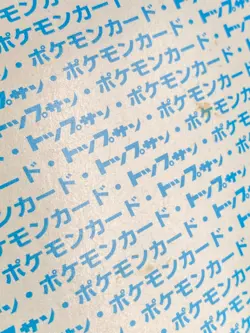 ポケモンカード・
トップサン・ポケモンカード・
カード・トップサン・ポケモンカード
ポケモンカード・トップサン・ポケモン
・ポケモンカード・トップサン・
トップサン・ポケモンカード・トップサン
カード・トップサン・ポケモンカード・
ポケモンカード・トップサン・ポケモンカード
・ポケモンカード・トップサン・ポケモン
トップサン・ポケモンカード・トップサン・
・トップサン・ポケモンカード・トップサン
ポケモンカード・